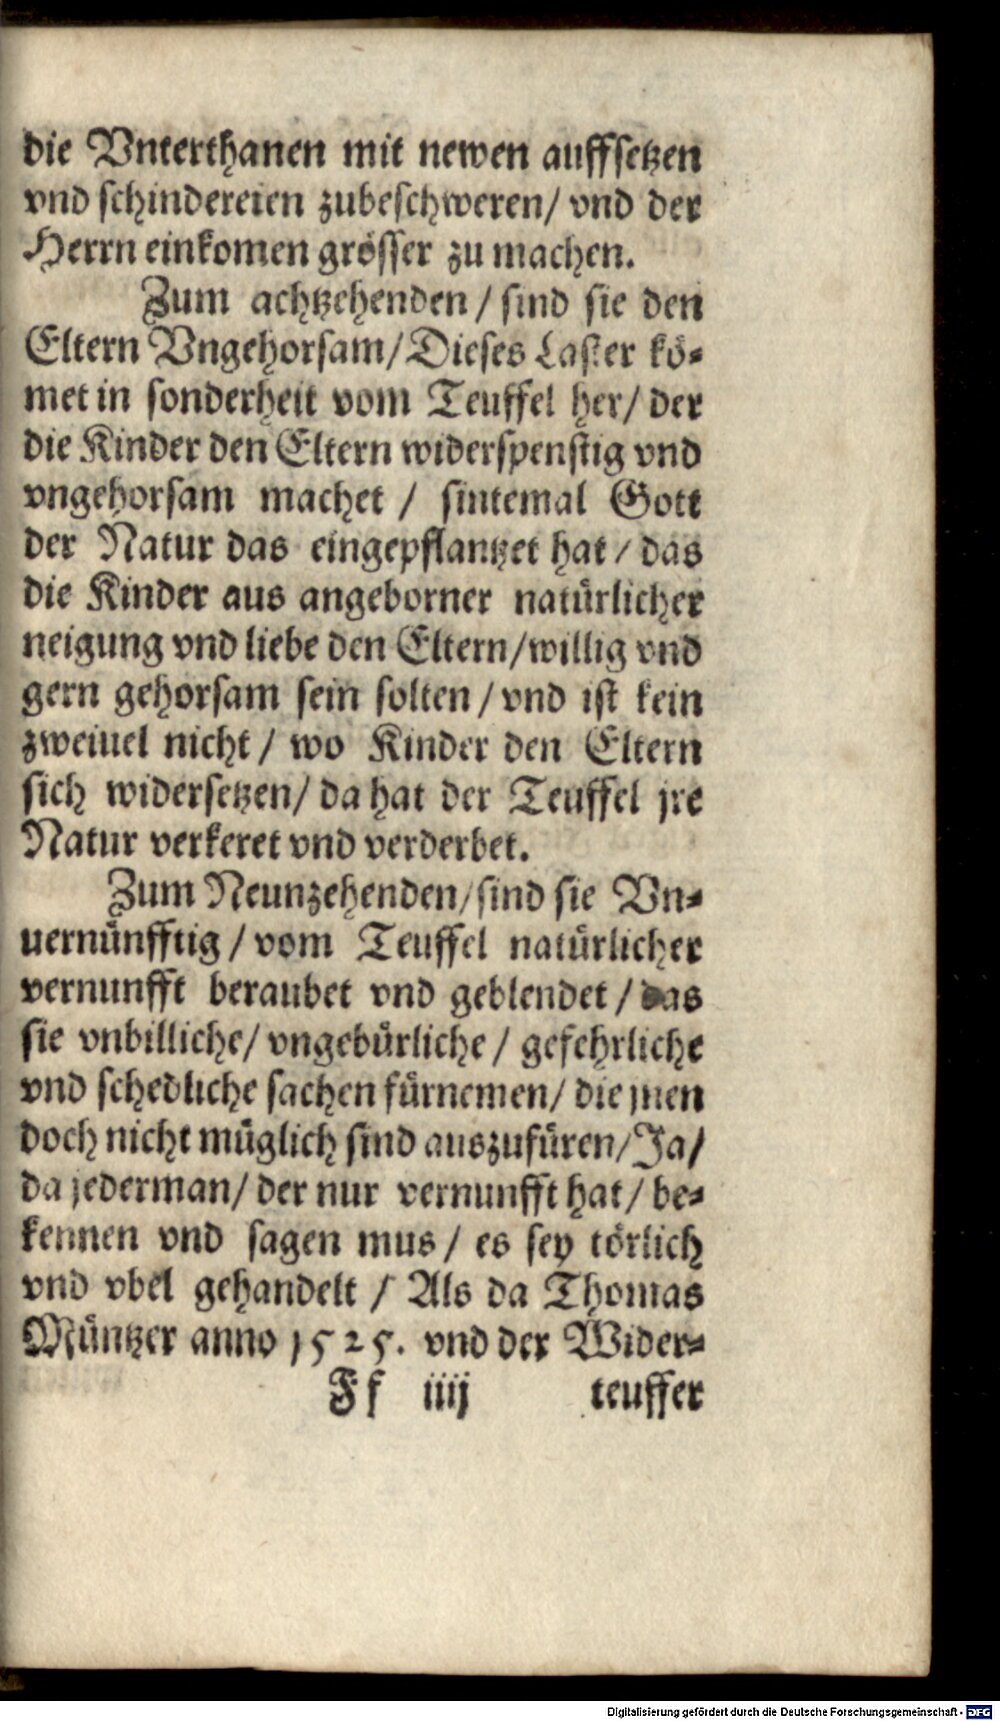 die Vnterthanen mit newen auffsetzen
vnd schindereien zubeschweren/ vnd der
Herrn einkomen grösser zu machen.
Zum achtzehenden / sind sie den
Eltern Vngehorsam/ Dieses Laster kö-
met in sonderheit vom Teuffel her/ der
die Kinder den Eltern widerspenstig vnd
vngehorsam machet / sintemal Gott
der Natur das eingepflantzet hat / das
die Kinder aus angeborner natürlicher
neigung vnd liebe den Eltern/willig vnd
gern gehorsam sein solten / vnd ist kein
zweiuel nicht / wo Kinder den Eltern
sich widersetzen/ da hat der Teuffel jre
Natur verkeret vnd verderbet.
Zum Neunzehenden/sind sie Vn-
uernünfftig / vom Teuffel natürlicher
vernunfft beraubet vnd geblendet / das
sie vnbilliche/ vngebürliche / gefehrliche
vnd schedliche sachen fürnemen/ die jnen
doch nicht müglich sind auszufüren/Ja/
da jederman/ der nur vernunfft hat/ be-
kennen vnd sagen mus / es sey törlich
vnd vbel gehandelt / Als da Thomas
Müntzer anno 1525. vnd der Wider-
Ff iiij teuffer
Digitalisierung gefördert durch die Deutsche Forschungsgemeinschaft - DFG